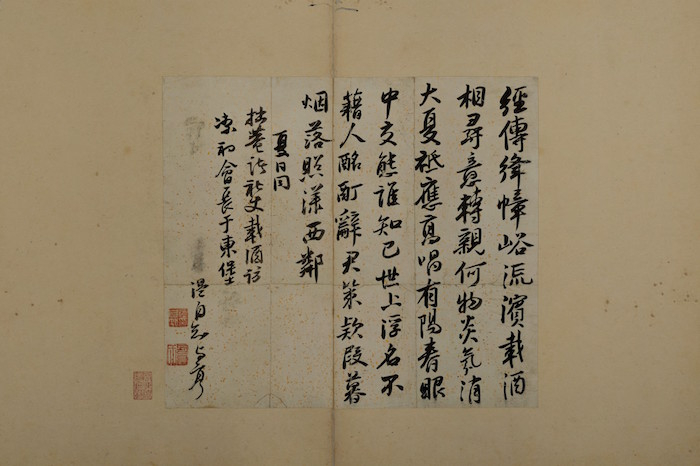 經傳絳幛峪流濱載酒
相尋意轉親何物炎氛消
大夏祗應高唱有陽春眼
中交態誰知己世上浮名不
藉人酩酊辭君策款段暮
烟落照漾西鄰
夏日同
拙菴諸社丈載酒訪
和會長于東堡